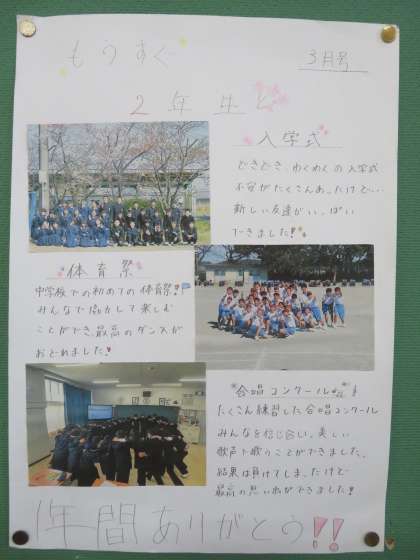 もうすぐ
3月号
2年生
入学式
どきどき、わくわくの入学式
不安がたくさんあったけど…
新しい友達がいっぱい
できました!
体育祭
中学校での初めての体育祭!
みんなで協力して楽しむ
ことができ、最高のダンスが
おどれました!
合唱コンクール
たくさん練習した合唱コンクール
みんなを信じ合い、美しい
歌声で歌うことができました。
結果は負けてしまったけど
最高の思い出ができました!
1年間ありがとう!!